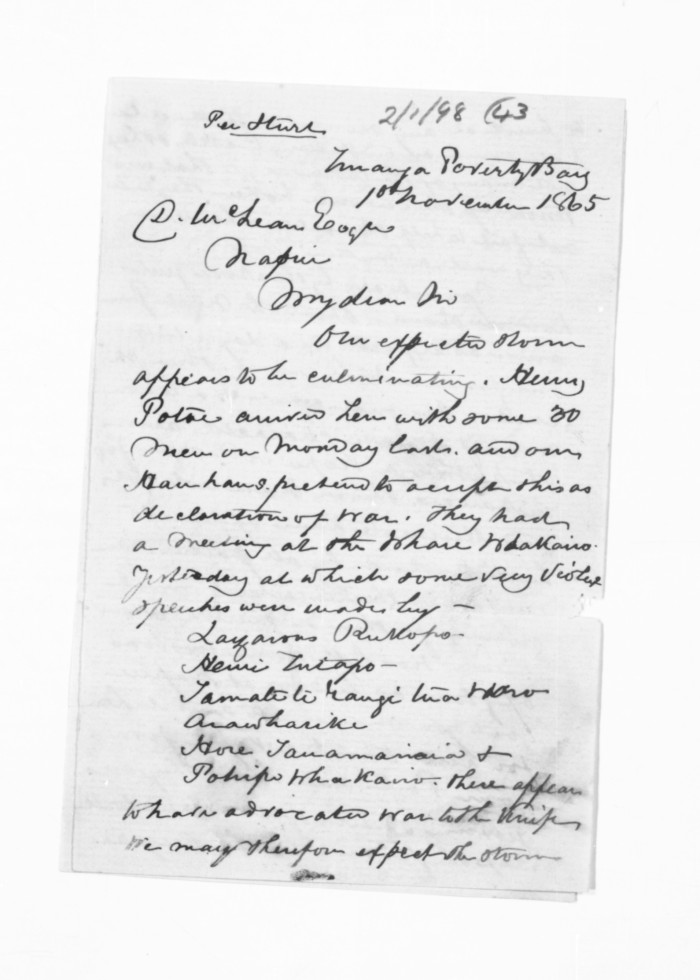 2/1/98 (43
Per Sturt
Turanga Poverty Bay
1st November 1865
D. McLean Esqre
Napier
My dear Sir
Our expected storm
appears to be culminating. Henry
Potae arrived here with some 30
men on Monday last. and our
Hauhaus pretend to accept this as
declaration of war. They had
a meeting at the Whare Whakairo
Yesterday at which some very violent
speeches were made by —
Lazarous Rukupo
Hemi Tutapo —
Tamati te Rangi
Anawhariki
Hore &
Pohipi Whakairo. these appear
to have advocated war to the Knife
We may therefore expect the storm